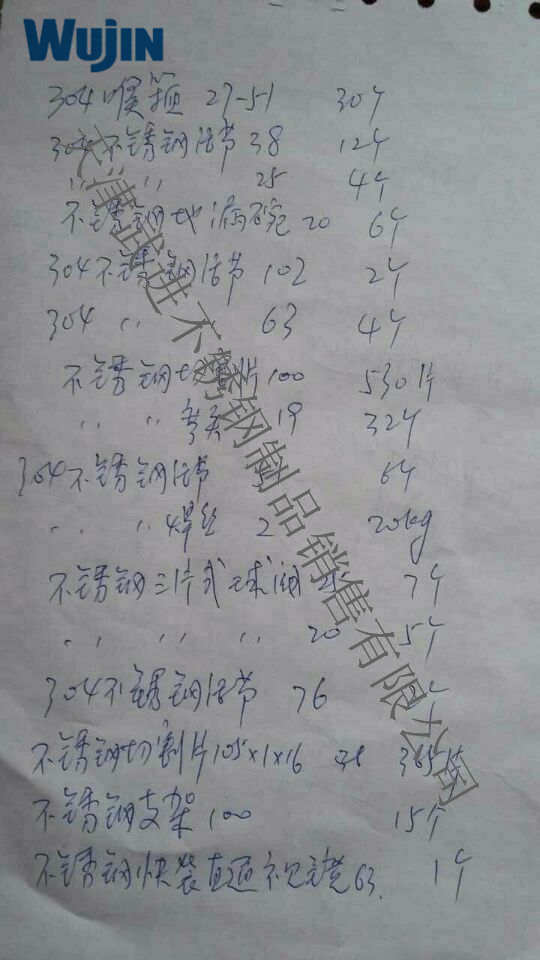 WUJIN
304喉箍 27-51 30个
304不锈钢活节 38 12个
〃 〃 25 4个
不锈钢地漏 20 6个
304不锈钢活节 102 2个
304 〃 63 4个
不锈钢切割片100 530片
〃 〃 弯头 19 32个
304不锈钢活节 6个
〃 〃焊丝 2 20kg
不锈钢三片式球阀 25 7个
〃 〃 〃 20 5个
304不锈钢活节 76
不锈钢切割片105×1×16 365片
不锈钢支架100 15个
不锈钢快装直通视镜63. 1个
天津武进不锈钢制品销售有限公司